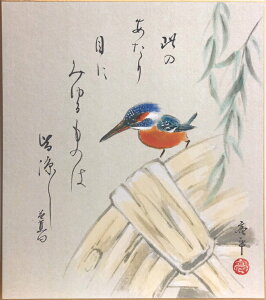 此の
あたり
目に
みゆるものは
皆涼し
芭蕉句